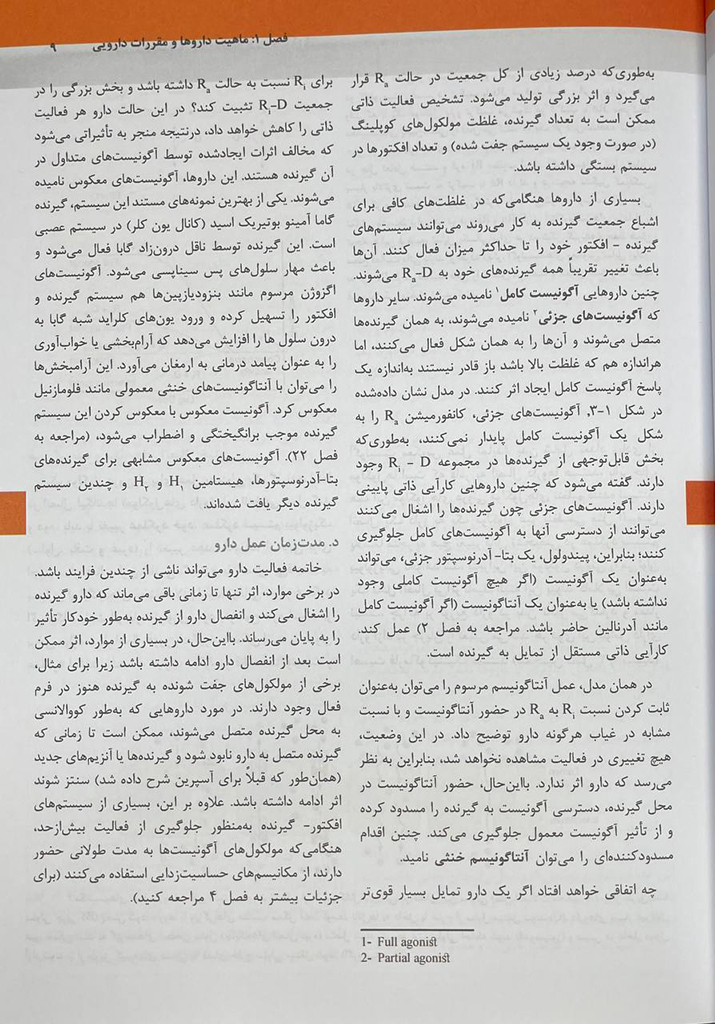 فصل ۱: ماهیت داروها و مقررات دارویی ۹
به‌طوری‌که درصد زیادی از کل جمعیت در حالت Ra قرار
می‌گیرد و اثر بزرگی تولید می‌شود. تشخیص فعالیت ذاتی
ممکن است به تعداد گیرنده، غلظت مولکول‌های کوپلینگ
(در صورت وجود یک سیستم جفت شده) و تعداد افکتورها در
سیستم بستگی داشته باشد.
بسیاری از داروها هنگامی‌که در غلظت‌های کافی برای
اشباع جمعیت گیرنده به کار می‌روند می‌توانند سیستم‌های
گیرنده - افکتور خود را تا حداکثر میزان فعال کنند. آن‌ها
باعث تغییر تقریباً همه گیرنده‌های خود به Ra-D می‌شوند.
چنین داروهایی آگونیست کامل۱ نامیده می‌شوند. سایر داروها
که آگونیست‌های جزئی۲ نامیده می‌شوند، به همان گیرنده‌ها
متصل می‌شوند و آن‌ها را به همان شکل فعال می‌کنند، اما
هراندازه هم که غلظت بالا باشد باز قادر نیستند به‌اندازه یک
پاسخ آگونیست کامل ایجاد اثر کنند. در مدل نشان داده‌شده
در شکل ۱-۳، آگونیست‌های جزئی، کانفورمیشن Ra را به
شکل یک آگونیست کامل پایدار نمی‌کنند، به‌طوری‌که
بخش قابل‌توجهی از گیرنده‌ها در مجموعه Ri - D وجود
دارند. گفته می‌شود که چنین داروهایی کارآیی ذاتی پایینی
دارند. آگونیست‌های جزئی چون گیرنده‌ها را اشغال می‌کنند
می‌توانند از دسترسی آنها به آگونیست‌های کامل جلوگیری
کنند؛ بنابراین، پیندولول، یک بتا- آدرنوسپتور جزئی، می‌تواند
به‌عنوان یک آگونیست (اگر هیچ آگونیست کاملی وجود
نداشته باشد) یا به‌عنوان یک آنتاگونیست (اگر آگونیست کامل
مانند آدرنالین حاضر باشد. مراجعه به فصل ۲) عمل کند.
کارآیی ذاتی مستقل از تمایل به گیرنده است.
در همان مدل، عمل آنتاگونیسم مرسوم را می‌توان به‌عنوان
ثابت کردن نسبت Ri به Ra در حضور آنتاگونیست و با نسبت
مشابه در غیاب هرگونه دارو توضیح داد. در این وضعیت،
هیچ تغییری در فعالیت مشاهده نخواهد شد، بنابراین به نظر
می‌رسد که دارو اثر ندارد. بااین‌حال، حضور آنتاگونیست در
محل گیرنده، دسترسی آگونیست به گیرنده را مسدود کرده
و از تأثیر آگونیست معمول جلوگیری می‌کند. چنین اقدام
مسدودکننده‌ای را می‌توان آنتاگونیسم خنثی نامید.
چه اتفاقی خواهد افتاد اگر یک دارو تمایل بسیار قوی‌تر
1- Full agonist
2- Partial agonist
برای Ri نسبت به حالت Ra داشته باشد و بخش بزرگی را در
جمعیت Ri-D تثبیت کند؟ در این حالت دارو هر فعالیت
ذاتی را کاهش خواهد داد، درنتیجه منجر به تأثیراتی می‌شود
که مخالف اثرات ایجادشده توسط آگونیست‌های متداول در
آن گیرنده هستند. این داروها، آگونیست‌های معکوس نامیده
می‌شوند. یکی از بهترین نمونه‌های مستند این سیستم، گیرنده
گاما آمینو بوتیریک اسید (کانال یون کلر) در سیستم عصبی
است. این گیرنده توسط ناقل درون‌زاد گابا فعال می‌شود و
باعث مهار سلول‌های پس سیناپسی می‌شود. آگونیست‌های
اگزوژن مرسوم مانند بنزودیازپین‌ها هم سیستم گیرنده و
افکتور را تسهیل کرده و ورود یون‌های کلراید شبه گابا به
درون سلول ها را افزایش می‌دهد که آرام‌بخشی یا خواب‌آوری
را به عنوان پیامد درمانی به ارمغان می‌آورد. این آرامبخش‌ها
را می‌توان با آنتاگونیست‌های خنثی معمولی مانند فلومازنیل
معکوس کرد. آگونیست معکوس با معکوس کردن این سیستم
گیرنده موجب برانگیختگی و اضطراب می‌شود، (مراجعه به
فصل ۲۲). آگونیست‌های معکوس مشابهی برای گیرنده‌های
بتا-آدرنوسپتورها، هیستامین H۱ و H۲ و چندین سیستم
گیرنده دیگر یافت شده‌اند.
د. مدت‌زمان عمل دارو
خاتمه فعالیت دارو می‌تواند ناشی از چندین فرایند باشد.
در برخی موارد، اثر تنها تا زمانی باقی می‌ماند که دارو گیرنده
را اشغال می‌کند و انفصال دارو از گیرنده به‌طور خودکار تأثیر
را به پایان می‌رساند. بااین‌حال، در بسیاری از موارد، اثر ممکن
است بعد از انفصال دارو ادامه داشته باشد زیرا برای مثال،
برخی از مولکول‌های جفت شونده به گیرنده هنوز در فرم
فعال وجود دارند. در مورد داروهایی که به‌طور کووالانسی
به محل گیرنده متصل می‌شوند، ممکن است تا زمانی که
گیرنده متصل به دارو نابود شود و گیرنده‌ها یا آنزیم‌های جدید
(همان‌طور که قبلاً برای آسپرین شرح داده شد) سنتز شوند
اثر ادامه داشته باشد. علاوه بر این، بسیاری از سیستم‌های
افکتور- گیرنده به‌منظور جلوگیری از فعالیت بیش‌ازحد،
هنگامی‌که مولکول‌های آگونیست‌ها به مدت طولانی حضور
دارند، از مکانیسم‌های حساسیت‌زدایی استفاده می‌کنند (برای
جزئیات بیشتر به فصل ۴ مراجعه کنید).